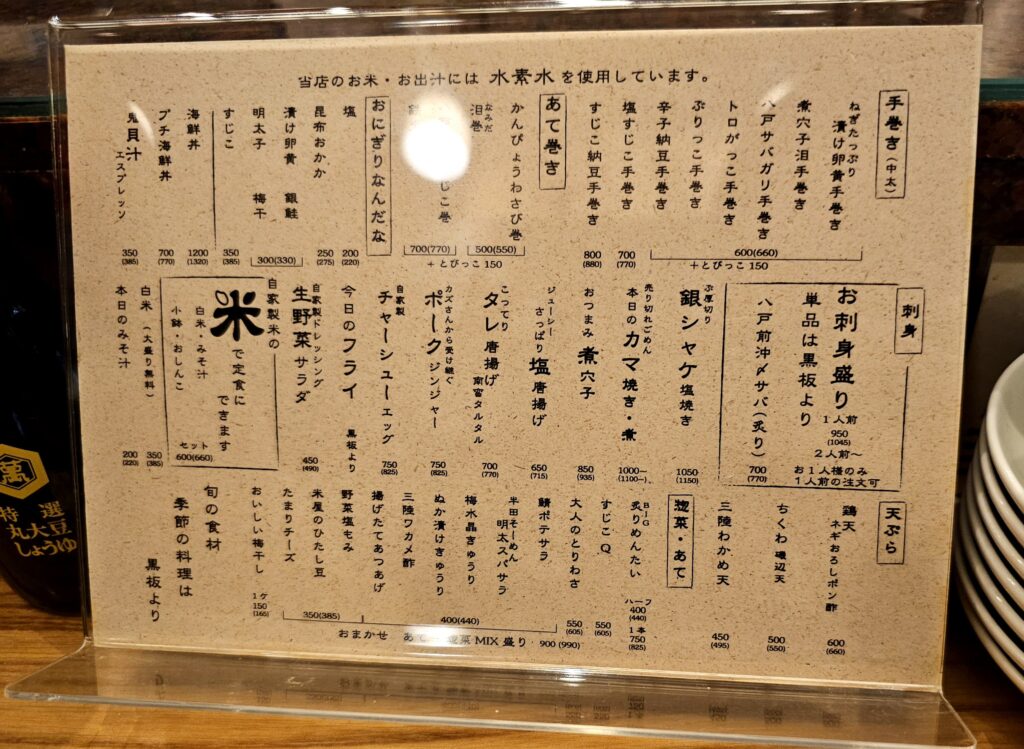 当店のお米・お出汁には 水素水 を使用しています。
手巻き(中太)
ねぎたっぷり
漬け卵黄手巻き
煮穴子泪手巻き
八戸サバガリ手巻き
トロがっこ手巻き
ぶりっこ手巻き
辛子納豆手巻き
600(660)
+とびっこ 150
塩すじこ手巻き
700
(770)
すじこ納豆手巻き
800
(880)
あて巻き
かんぴょうわさび巻
なみだ
泪巻
500(550)
じこ巻
700(770)
+とびっこ 150
おにぎりなんだな
塩
200
(220)
昆布おかか
250
(275)
漬け卵黄 銀鮭
明太子 梅干
300(330)
すじこ
350
(385)
海鮮丼
1200
(1320)
プチ海鮮丼
700
(770)
貝汁
エスプレッソ
350
(385)
刺身
お刺身盛り
1人前
950
(1045)
2人前〜
お1人様のみ
1人前の注文可
単品は黒板より
八戸前沖〆サバ(炙り)
700
(770)
ぶ厚切り
銀シャケ塩焼き
1050
(1150)
売り切れごめん
本日のカマ焼き・煮
1000〜
(1100〜)
おつまみ煮穴子
850
(935)
ジューシー
さっぱり塩唐揚げ
650
(715)
こってり
タレ唐揚げ
南宮タルタル
700
(770)
カズさんから受け継ぐ
ポークジンジャー
750
(825)
自家製
チャーシューエッグ
750
(825)
今日のフライ 黒板より
自家製ドレッシング
生野菜サラダ
450
(490)
自家製米の
米で定食に
できます
白米・みそ汁
小鉢・おしんこ
セット
600(660)
白米(大盛り無料)
350
(385)
本日のみそ汁
200
(220)
天ぷら
鶏天
ネギおろしポン酢
600
(660)
ちくわ磯辺天
500
(550)
三陸わかめ天
450
(495)
惣菜・あて
BIG
炙りめんたい
ハーフ
400
(440)
1本
750
(825)
すじこQ
550
(605)
大人のとりわさ
550
(605)
鯖ポテサラ
半田そーめん
明太スパサラ
梅水晶きゅうり
ぬか漬けきゅうり
三陸ワカメ酢
400(440)
揚げたてあつあげ
野菜塩もみ
米屋のひたし豆
たまりチーズ
350(385)
おいしい梅干し
1ケ
150
(165)
おまかせ あて 惣菜MIX盛り 900(990)
旬の食材
季節の料理は
黒板より
萬
特選
丸大豆
しょうゆ